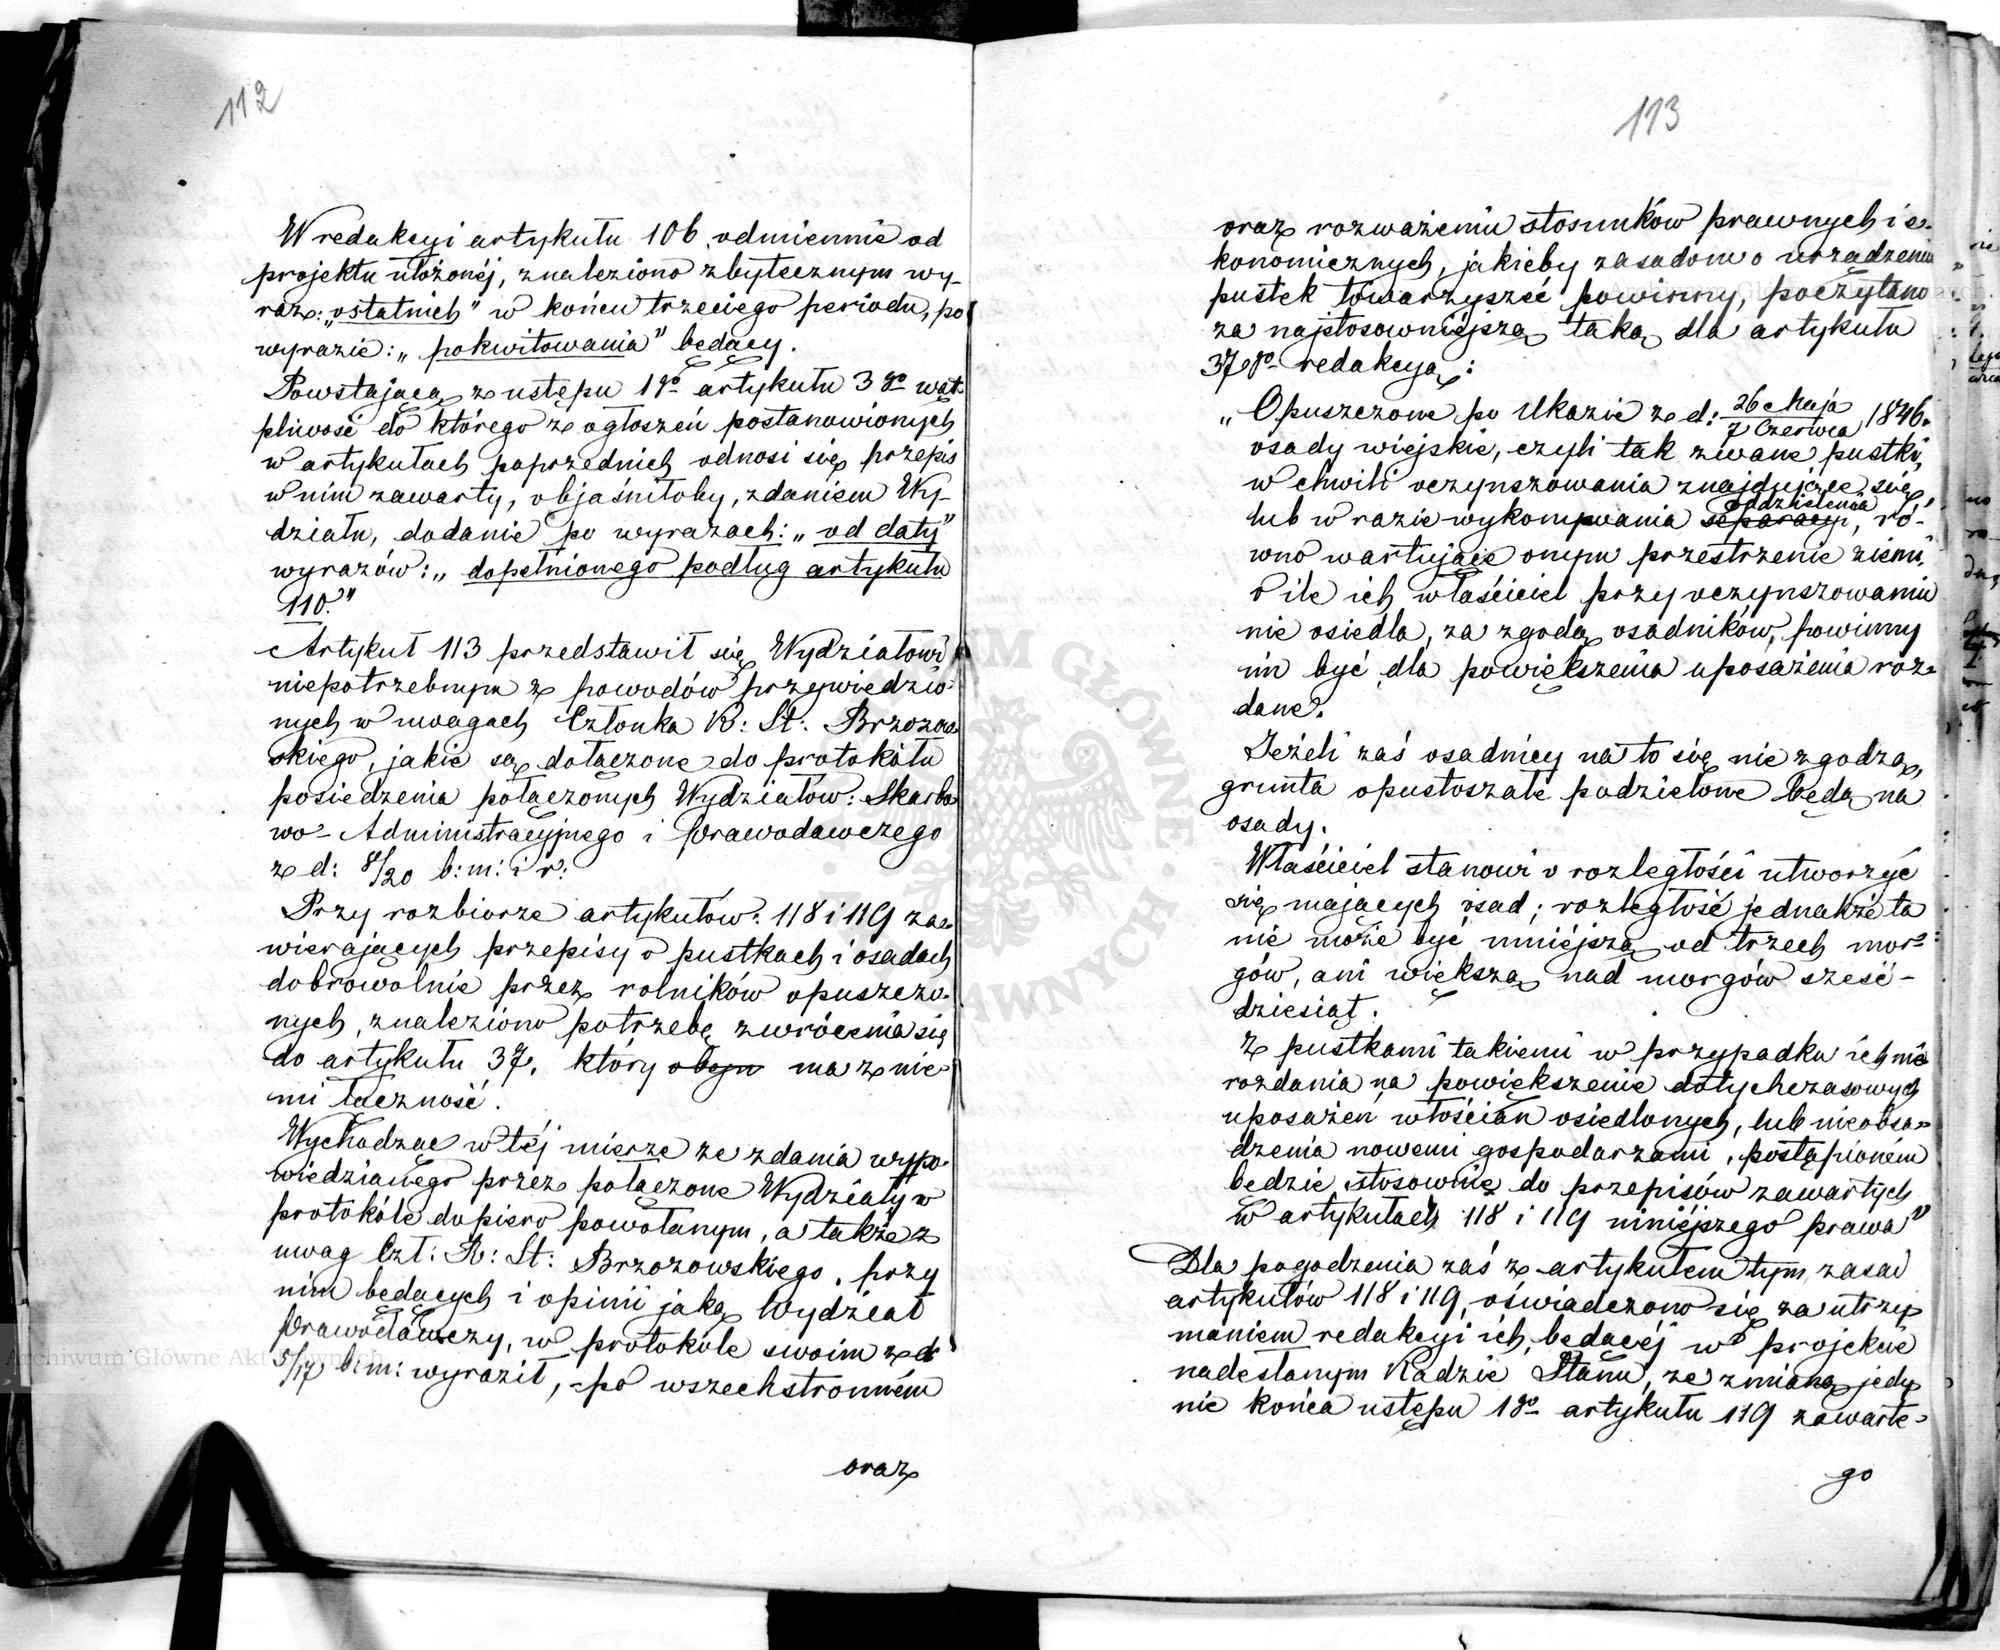 112
W redakcyi artykułu 106, odmiennie od
projektu ułożonéj, znaleziono zbytecznym wy-
raz: „ostatnich" w końcu trzeciego periodu, po
wyrazie: „pokwitowania" będący.
Powstającą z ustępu 1go artykułu 3go wąt-
pliwość do którego z ogłoszeń postanowionych
w artykułach poprzednich odnosi się przepis
w nim zawarty, objaśniłoby, zdaniem Wy-
działu, dodanie po wyrazach: „od daty"
wyrazów: „dopełnionego podług artykułu
110."
Artykuł 113 przedstawił się Wydziałowi
niepotrzebnym z powodów przywiedzio-
nych w uwagach Członka R: St: Brzozow-
skiego, jakie są dołączone do protokółu
posiedzenia połączonych Wydziałów: Skarbo-
wo-Administracyjnego i Prawodawczego
z d: 8/20 b: m: i r:
Przy rozbiorze artykułów: 118 i 119 za-
wierających przepisy o pustkach i osadach
dobrowolnie przez rolników opuszczo-
nych, znaleziono potrzebę zwrócenia się
do artykułu 37, który obyn ma z nie-
mi łączność.
Wychodząc w téj mierze ze zdania wypo-
wiedzianego przez połączone Wydziały w
protokóle dopiero powołanym, a także z
uwag Czł: R: St: Brzozowskiego, przy
nim będących i opinii jaką Wydział
Prawodawczy, w protokóle swoim z d:
5/17 b: m: wyraził, – po wszechstronném
oraz
113
oraz rozważeniu stosunków prawnych i e-
konomicznych, jakieby zasadom o urządzeniu
pustek towarzyszeć powinny, poczytano
za najstosowniejszą taką dla artykułu
37go redakcyą:
„Opuszczone po Ukazie z d: 26 Maja / 7 Czerwca 1846.
osady wiejskie, czyli tak zwane pustki,
w chwili oczynszowania znajdujące się,
oddzielenia
lub w razie wykonywania separacyi, ró-
wno wartujące onym przestrzenie ziemi,
o ile ich właściciel przy oczynszowaniu
nie osiedla, za zgodą osadników, powinny
im być dla powiększenia uposażenia roz-
dane.
Jeżeli zaś osadnicy na to się nie zgodzą,
grunta opustoszałe podzielone będą na
osady.
Właściciel stanowi o rozległości utworzyć
się mających osad; rozległość jednakże ta
nie może być mniejszą od trzech mor-
gów, ani większą nad morgów sześć-
dziesiąt.
Z pustkami takiemi w przypadku ich nie
rozdania na powiększenie dotychczasowych
uposażeń włościan osiedlonych, lub nieobsa-
dzenia nowemi gospodarzami, postąpioném
będzie stosownie do przepisów zawartych
w artykułach 118 i 119 niniejszego prawa"
Dla pogodzenia zaś z artykułem tym, zasad
artykułów 118 i 119, oświadczono się za utrzy
maniem redakcyi ich, będącéj w projekcie
nadesłanym Radzie Stanu, ze zmianą jedy
nie końca ustępu 1go artykułu 119 zawarte-
go